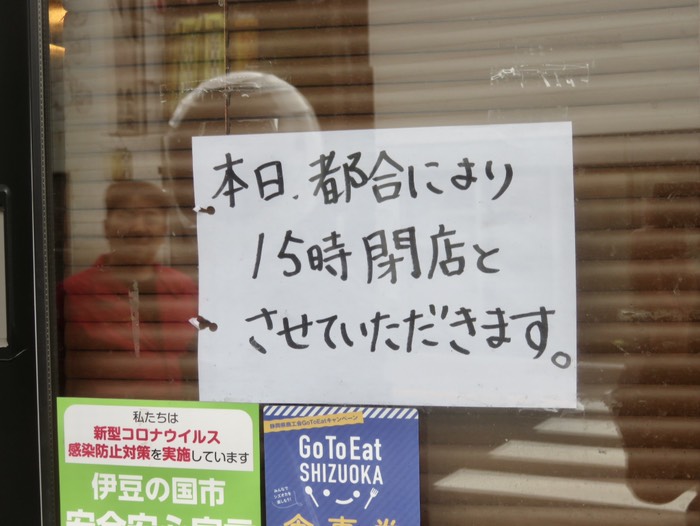 本日、都合により
15時閉店と
させていただきます。
私たちは
新型コロナウイルス
感染防止対策を実施しています
伊豆の国市
静岡県商工会GoToEatキャンペーン
GoToEat
SHIZUOKA
みんなで
食事券